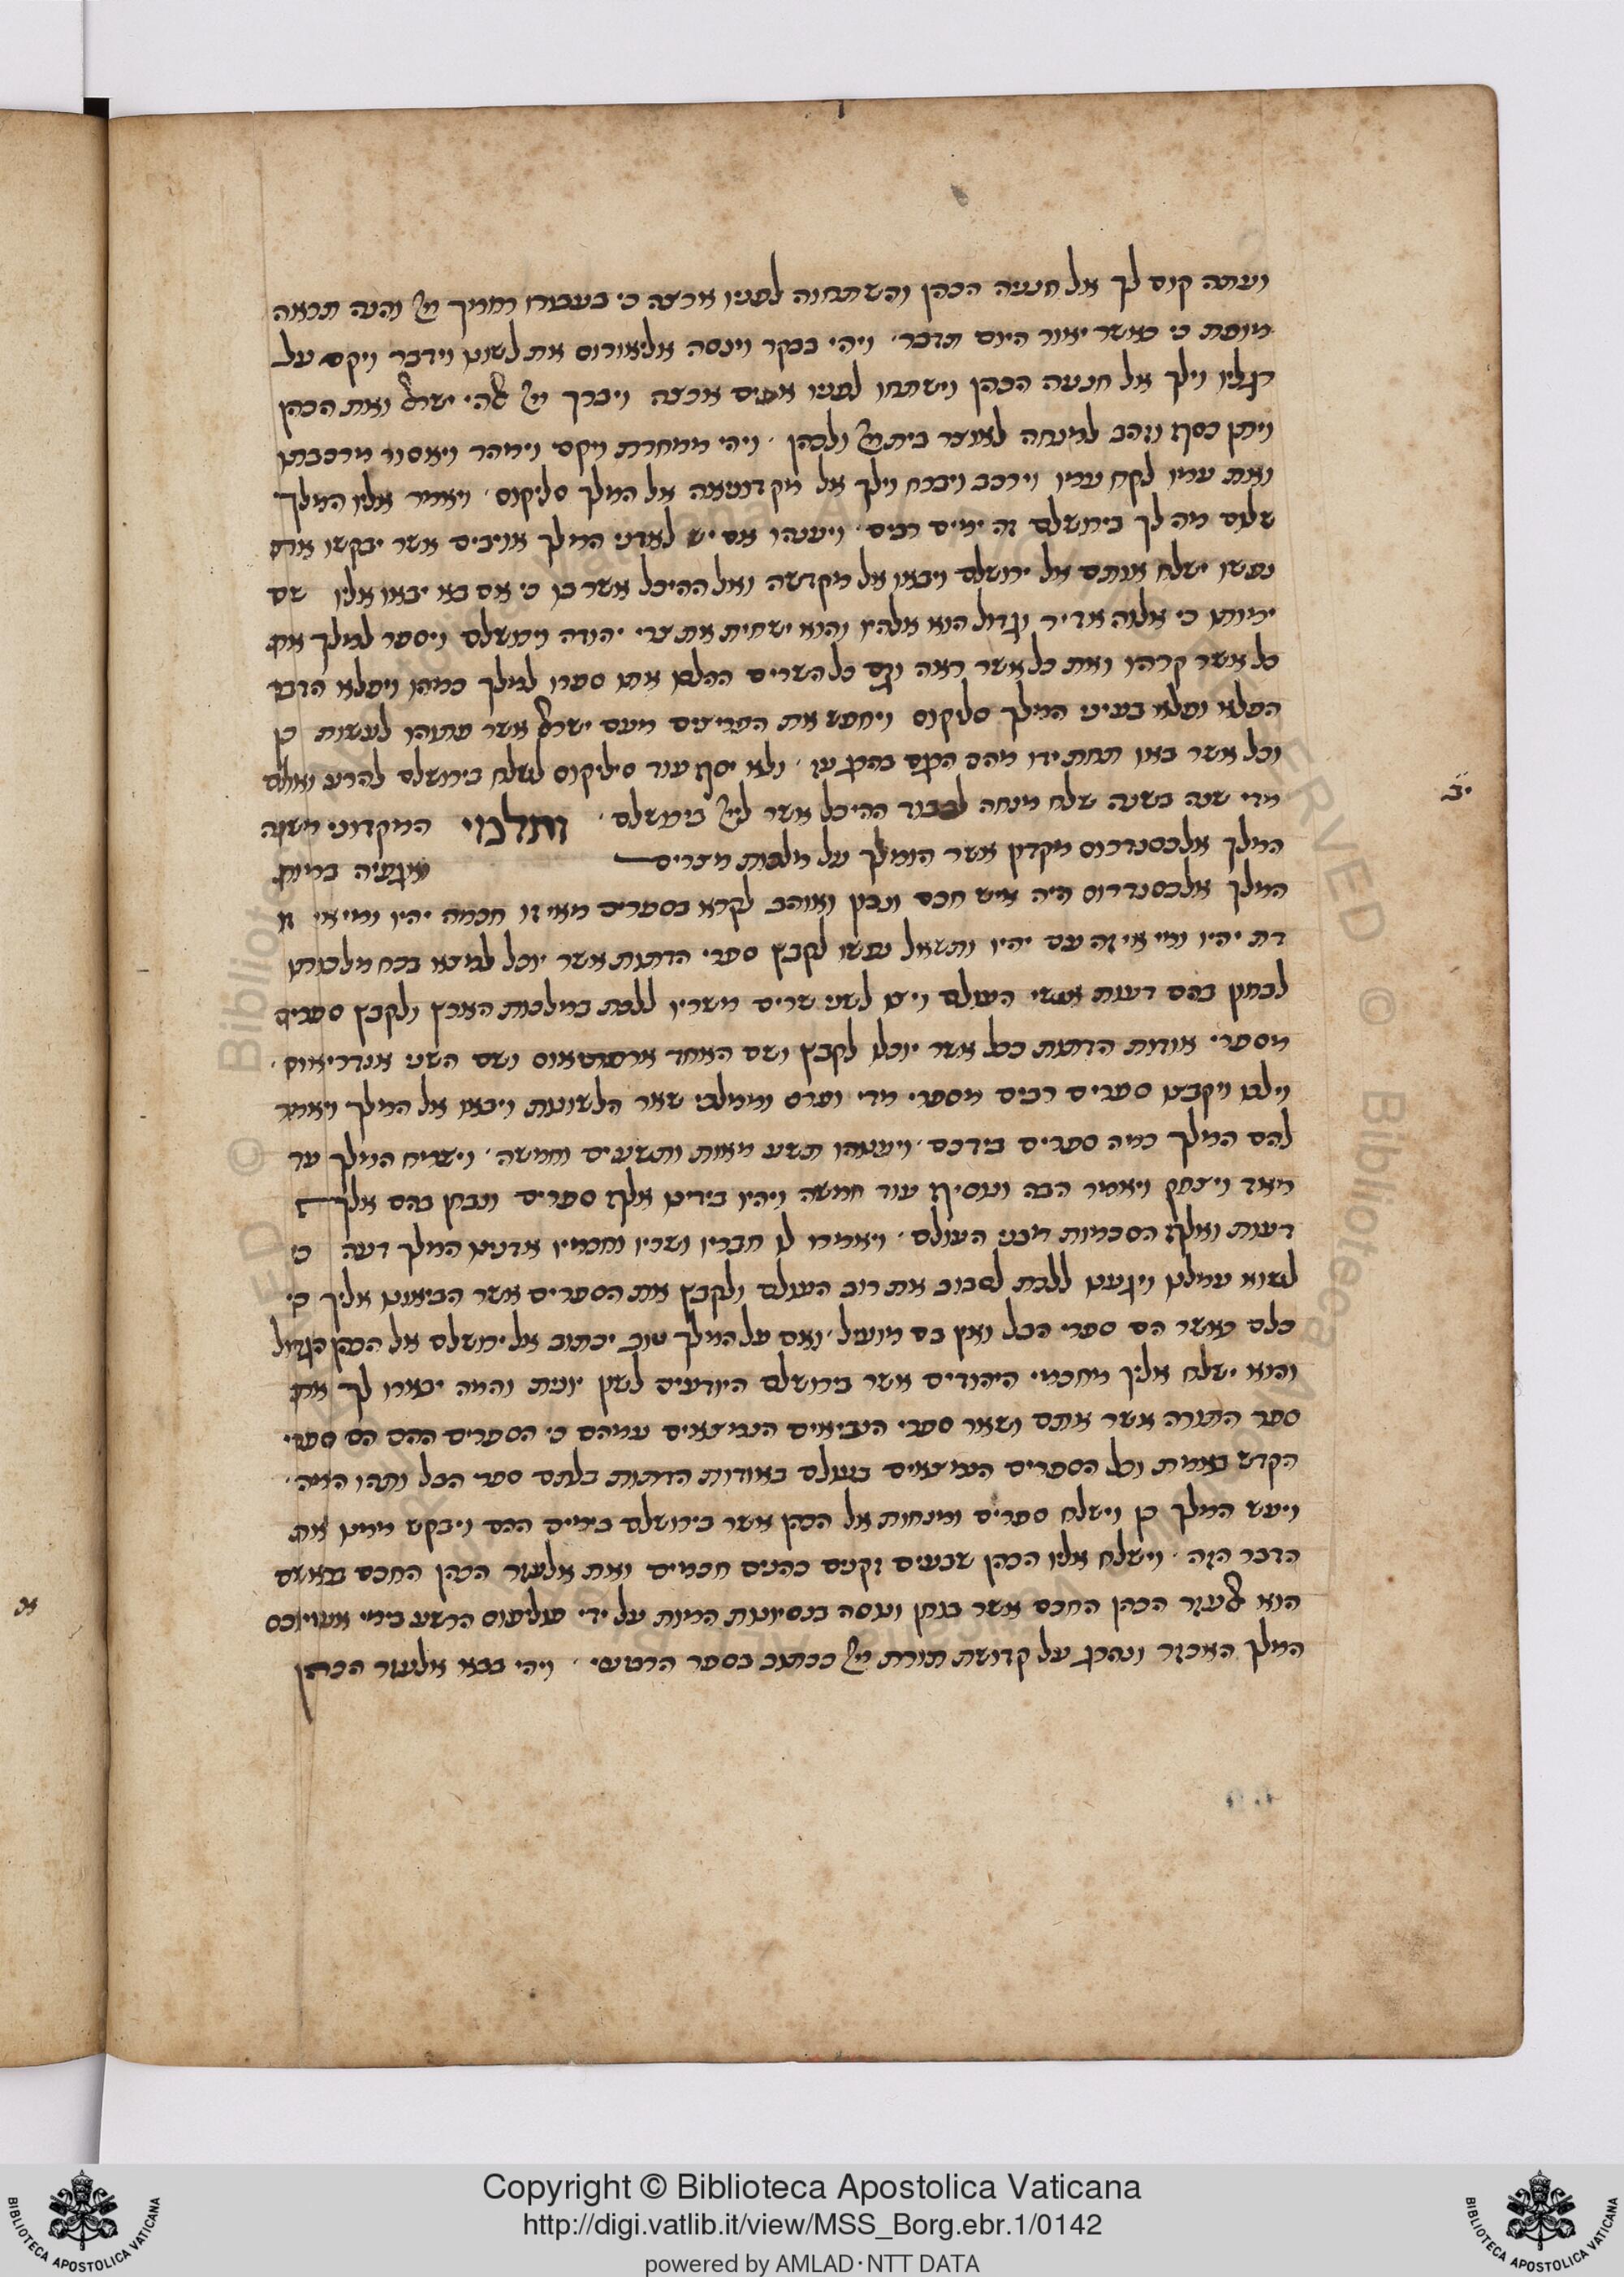 ועתה קום לך אל חנניה הכהן והשתחוה לפניו ארצה כי בעבורו רחמך יי והנה תראה
מופת כי כאשר יאור היום תדבר׳ ויהי בבקר וינסה אליאודורוס את לשונו וידבר ויקם על
רגליו וילך אל חנניה הכהן וישתחו לפניו אפים ארצה ויברך יי אלהי ישראל ואת הכהן
ויתן כסף וזהב למנחה לאוצר בית יי ולכהן׳ ויהי ממחרת ויקם וימהר ויאסור מרכבתו
ואת עמיו לקח עמיו וירכב ויברח וילך אל מקדוניאה אל המלך סליקוס׳ ויאמר אליו המלך
שלום מה לך בירושלם זה ימים רבים׳ ויענהו אם יש לאדני המלך אויבים אשר יבקשו את
נפשו ישלח אותם אל ירושלם ויבאו אל מקדשה ואל ההיכל אשר בו כי אם בא יבאו אליו שם
ימותו כי אלוה אדיר וגדול הוא אלהיו והוא ישחית את צרי יהודה וירושלם ויספר למלך את
כל אשר קרהו ואת כל אשר ראה וגם כל השרים ההלכו אתו ספרו למלך כמהו ויפלא הדבר
הפלא ופלא בעיני המלך סליקוס ויחפש את הפריצים מעם ישראל אשר פתוהו לעשות כן
וכל אשר באו תחת ידו מהם הקם בהרגעו׳ ולא יסף עוד סיליקוס לשלח בירושלם להרע ואולם
מדי שנה בשנה שלח מנחה לכבוד ההיכל אשר ליי בירושלם׳ ותלמי המקדוני משנה
יב
המלך אלכסנדרוס מקדון אשר הומלך על מלכות מצרים ואגפיה במות
המלך אלכסנדרוס היה איש חכם ונבון ואוהב לקרא בספרים מאי זו חכמה יהיו ומי אי זו
דת יהיו ומי אי זה עם יהיו ותשאל נפשו לקבץ ספרי הדתות אשר יוכל למצא בכח מלכותו
לבחון בהם דעות אנשי העולם ויצו לשני שרים משריו ללכת במלכות הארץ ולקבץ ספרים
מספרי אודות הדתות ככל אשר יוכלו לקבץ ושם האחד ארסטיאוס ושם השני אנדריאוס׳
וילכו ויקבצו ספרים רבים מספרי מדי ופרס וממלכי שאר הלשונות ויבאו אל המלך ויאמר
להם המלך כמה ספרים בידכם׳ ויענוהו תשע מאות ותשעים וחמשה׳ וישמח המלך עד
מאד ויצחק ויאמר הבה ונוסיף עוד חמשה ויהיו בידינו אלף ספרים ונבחן בהם אלף
דעות ואלף הסכמות מבני העולם׳ ויאמרו לו חבריו ושריו וחכמיו אדנינו המלך דעה כי
לשוא עמלנו ויגענו ללכת לסבוב את רוב העולם ולקבץ את הספרים אשר הביאונו אליך כי
כלם כאשר הם ספרי הבל ואין בם מועיל׳ ואם על המלך טוב יכתוב אל ירושלם אל הכהן הגדול
והוא ישלח אליך מחכמי היהודים אשר בירושלם היודעים לשון יונית והמה יבארו לך את
ספר התורה אשר אתם ושאר ספרי הנביאים הנמצאים עמהם כי הספרים ההם הם ספרי
הקדש באמת וכל הספרים הנמצאים בעולם באודות הדתות בלתם ספרי הבל ותהו המה׳
ויעש המלך כן וישלח ספרים ומנחות אל הכהן אשר בירושלם בימים ההם ויבקש ממנו את
הדבר הזה׳ וישלח אליו הכהן שבעים זקנים כהנים חכמים ואת אלעזר הכהן החכם בראשם
א הוא אלעזר הכהן החכם אשר נבחן ונוסה בנסיונות המות על ידי פוליפוס הרשע בימי אנטיוכס
המלך האכזר ונהרג על קדושת תורת יי ככתוב בספר הרטשי׳ ויהי בבא אלעזר הכהן
Copyright © Biblioteca Apostolica Vaticana
http://digi.vatlib.it/view/MSS_Borg.ebr.1/0142
powered by AMLAD · NTT DATA
BIBLIOTECA APOSTOLICA VATICANA
BIBLIOTECA APOSTOLICA VATICANA